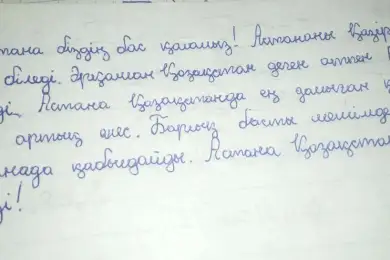 тана біздің бас қаламыз! Астананы қазір
біледі. Әрқашан Қазақстан деген атпен
ді. Астана Қазақстанда ең дамыған қ
артық емес. Барлық басты мәлімд
нада қабылдайды. Астана Қазақстан
і!